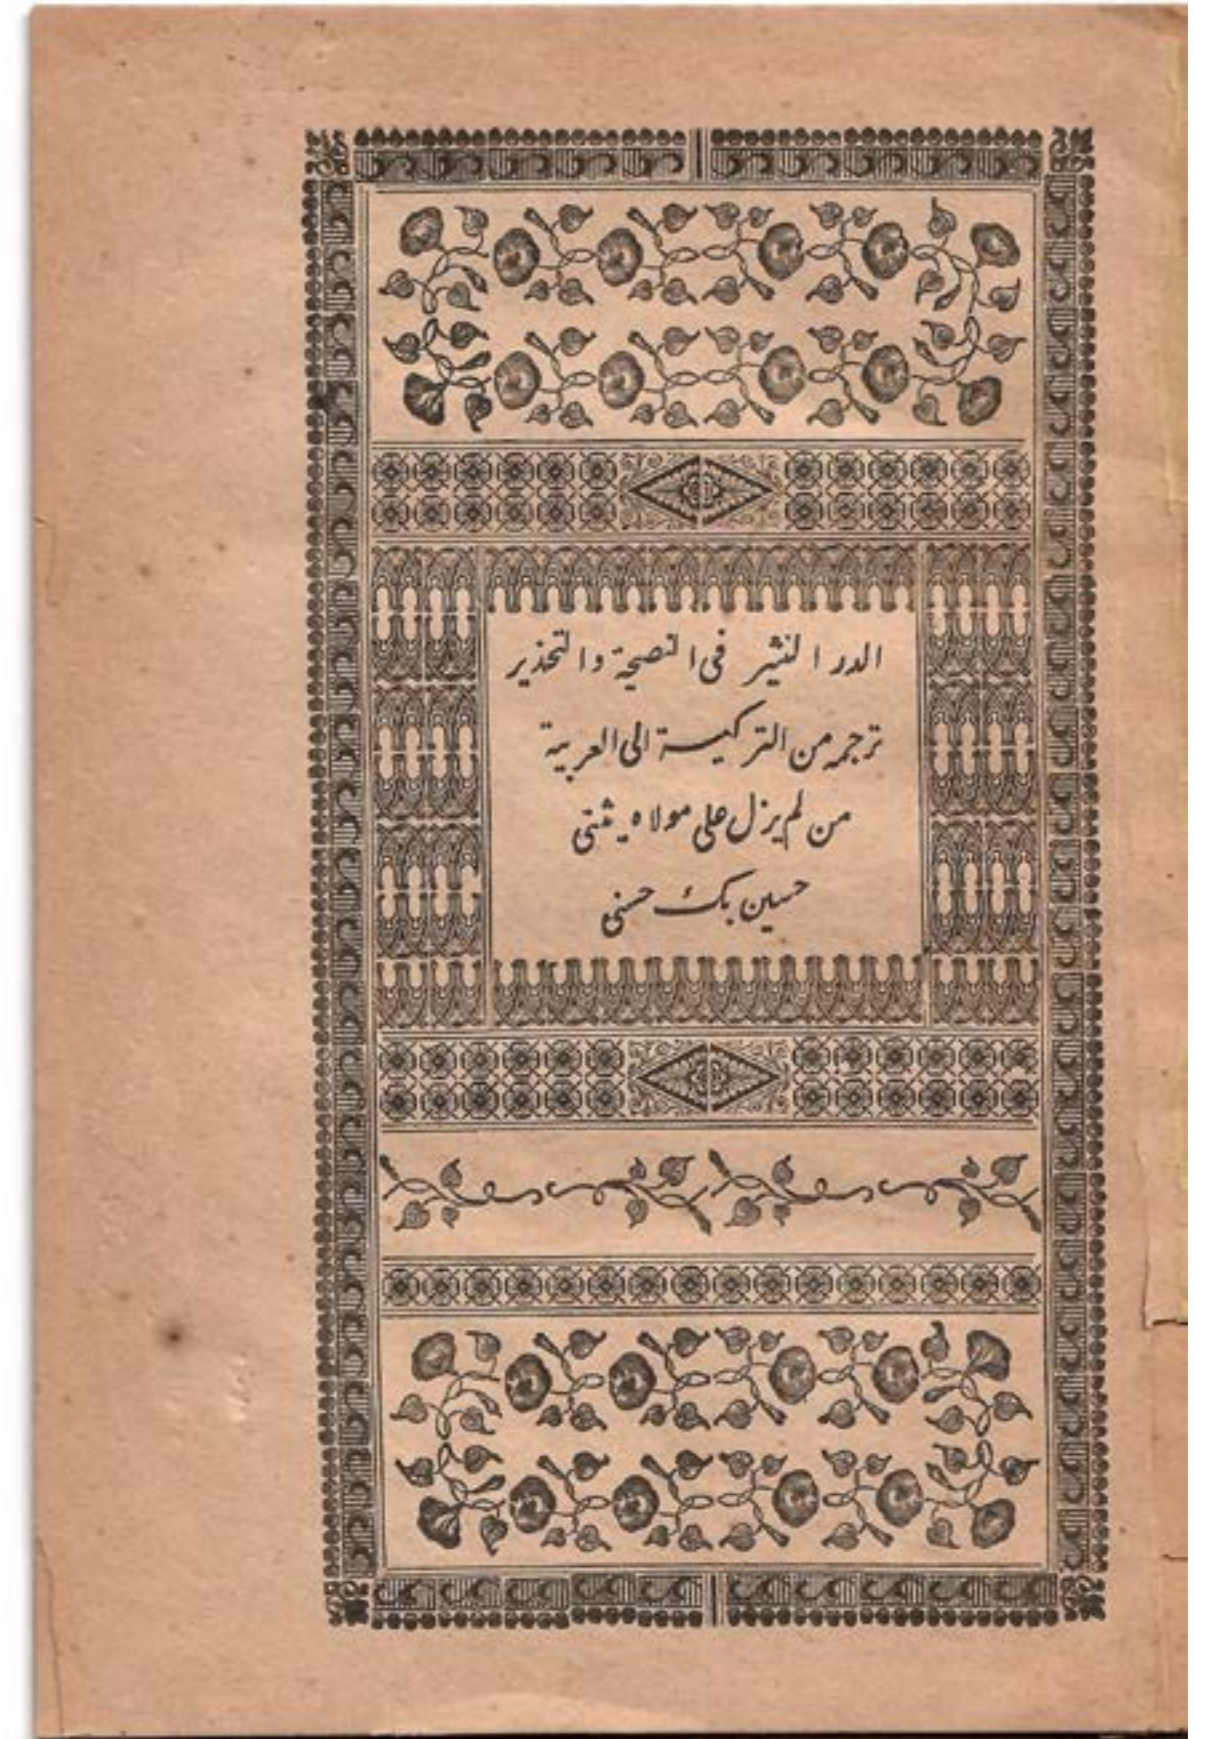 الدر النثير فى النصيحة والتحذير
ترجمه من التركية الى العربية
من لم يزل على مولاه يثنى
حسين بك حسنى